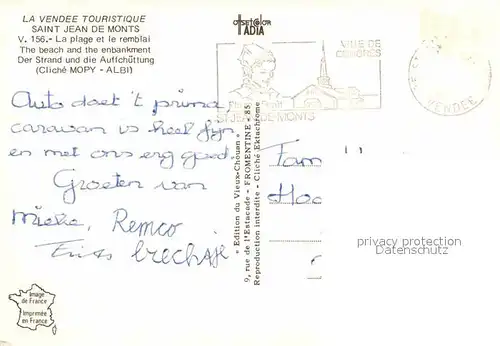 LA VENDEE TOURISTIQUE
SAINT JEAN DE MONTS
V. 156.- La plage et le remblai
The beach and the enbankment
Der Strand und die Auffchüttung
(Cliché MOPY - ALBI)
OFFSET COLOR
IADIA
VILLE DE
CONGRES
ST JEAN DE MONTS
VENDEE
Auto doet 't prima,
caravan is heel fijn.
en met ons erg goed.
Groeten van
Mieke, Remco
Frits
« Edition du Vieux-Chouan »
9, rue de l'Estacade - FROMENTINE - 85
Reproduction interdite - Cliché Ektachrome
Fam
Hoo
privacy protection
Datenschutz
Image
de France
Imprimée
en France